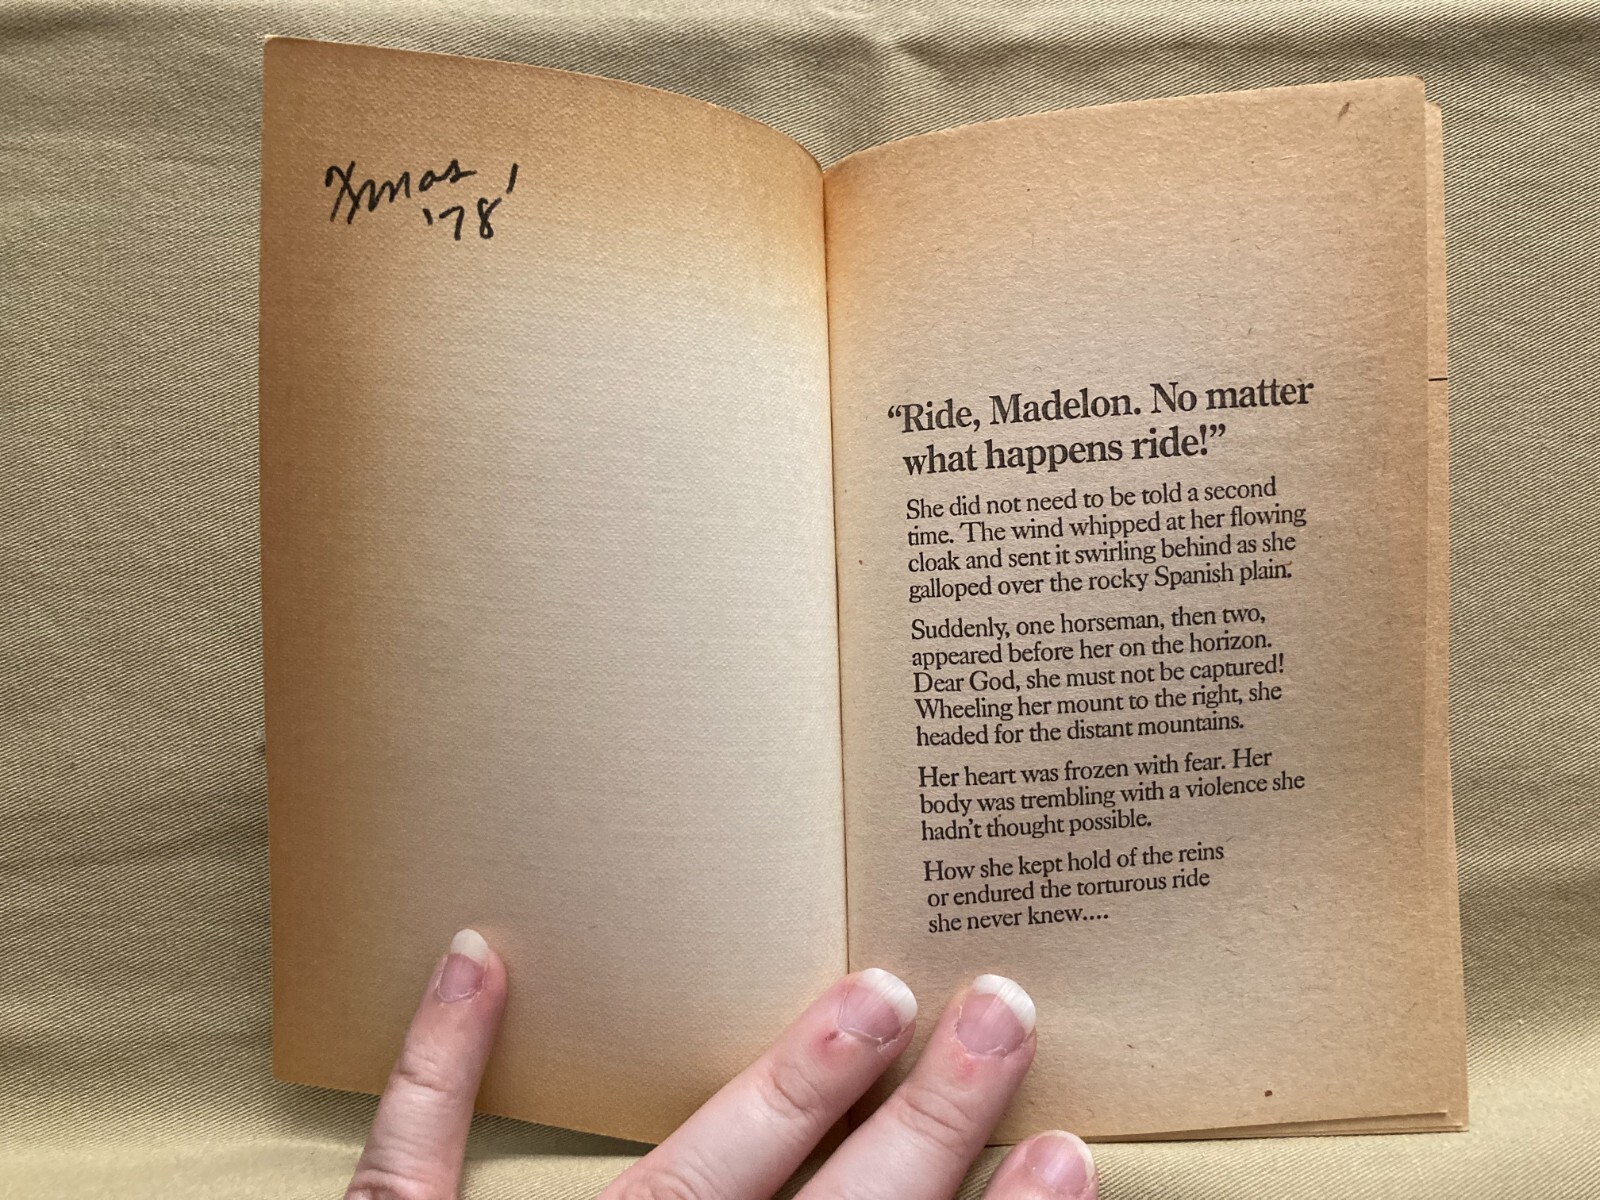 Xmas
'78'
“Ride, Madelon. No matter
what happens ride!”
She did not need to be told a second
time. The wind whipped at her flowing
cloak and sent it swirling behind as she
galloped over the rocky Spanish plain.
Suddenly, one horseman, then two,
appeared before her on the horizon.
Dear God, she must not be captured!
Wheeling her mount to the right, she
headed for the distant mountains.
Her heart was frozen with fear. Her
body was trembling with a violence she
hadn't thought possible.
How she kept hold of the reins
or endured the torturous ride
she never knew....